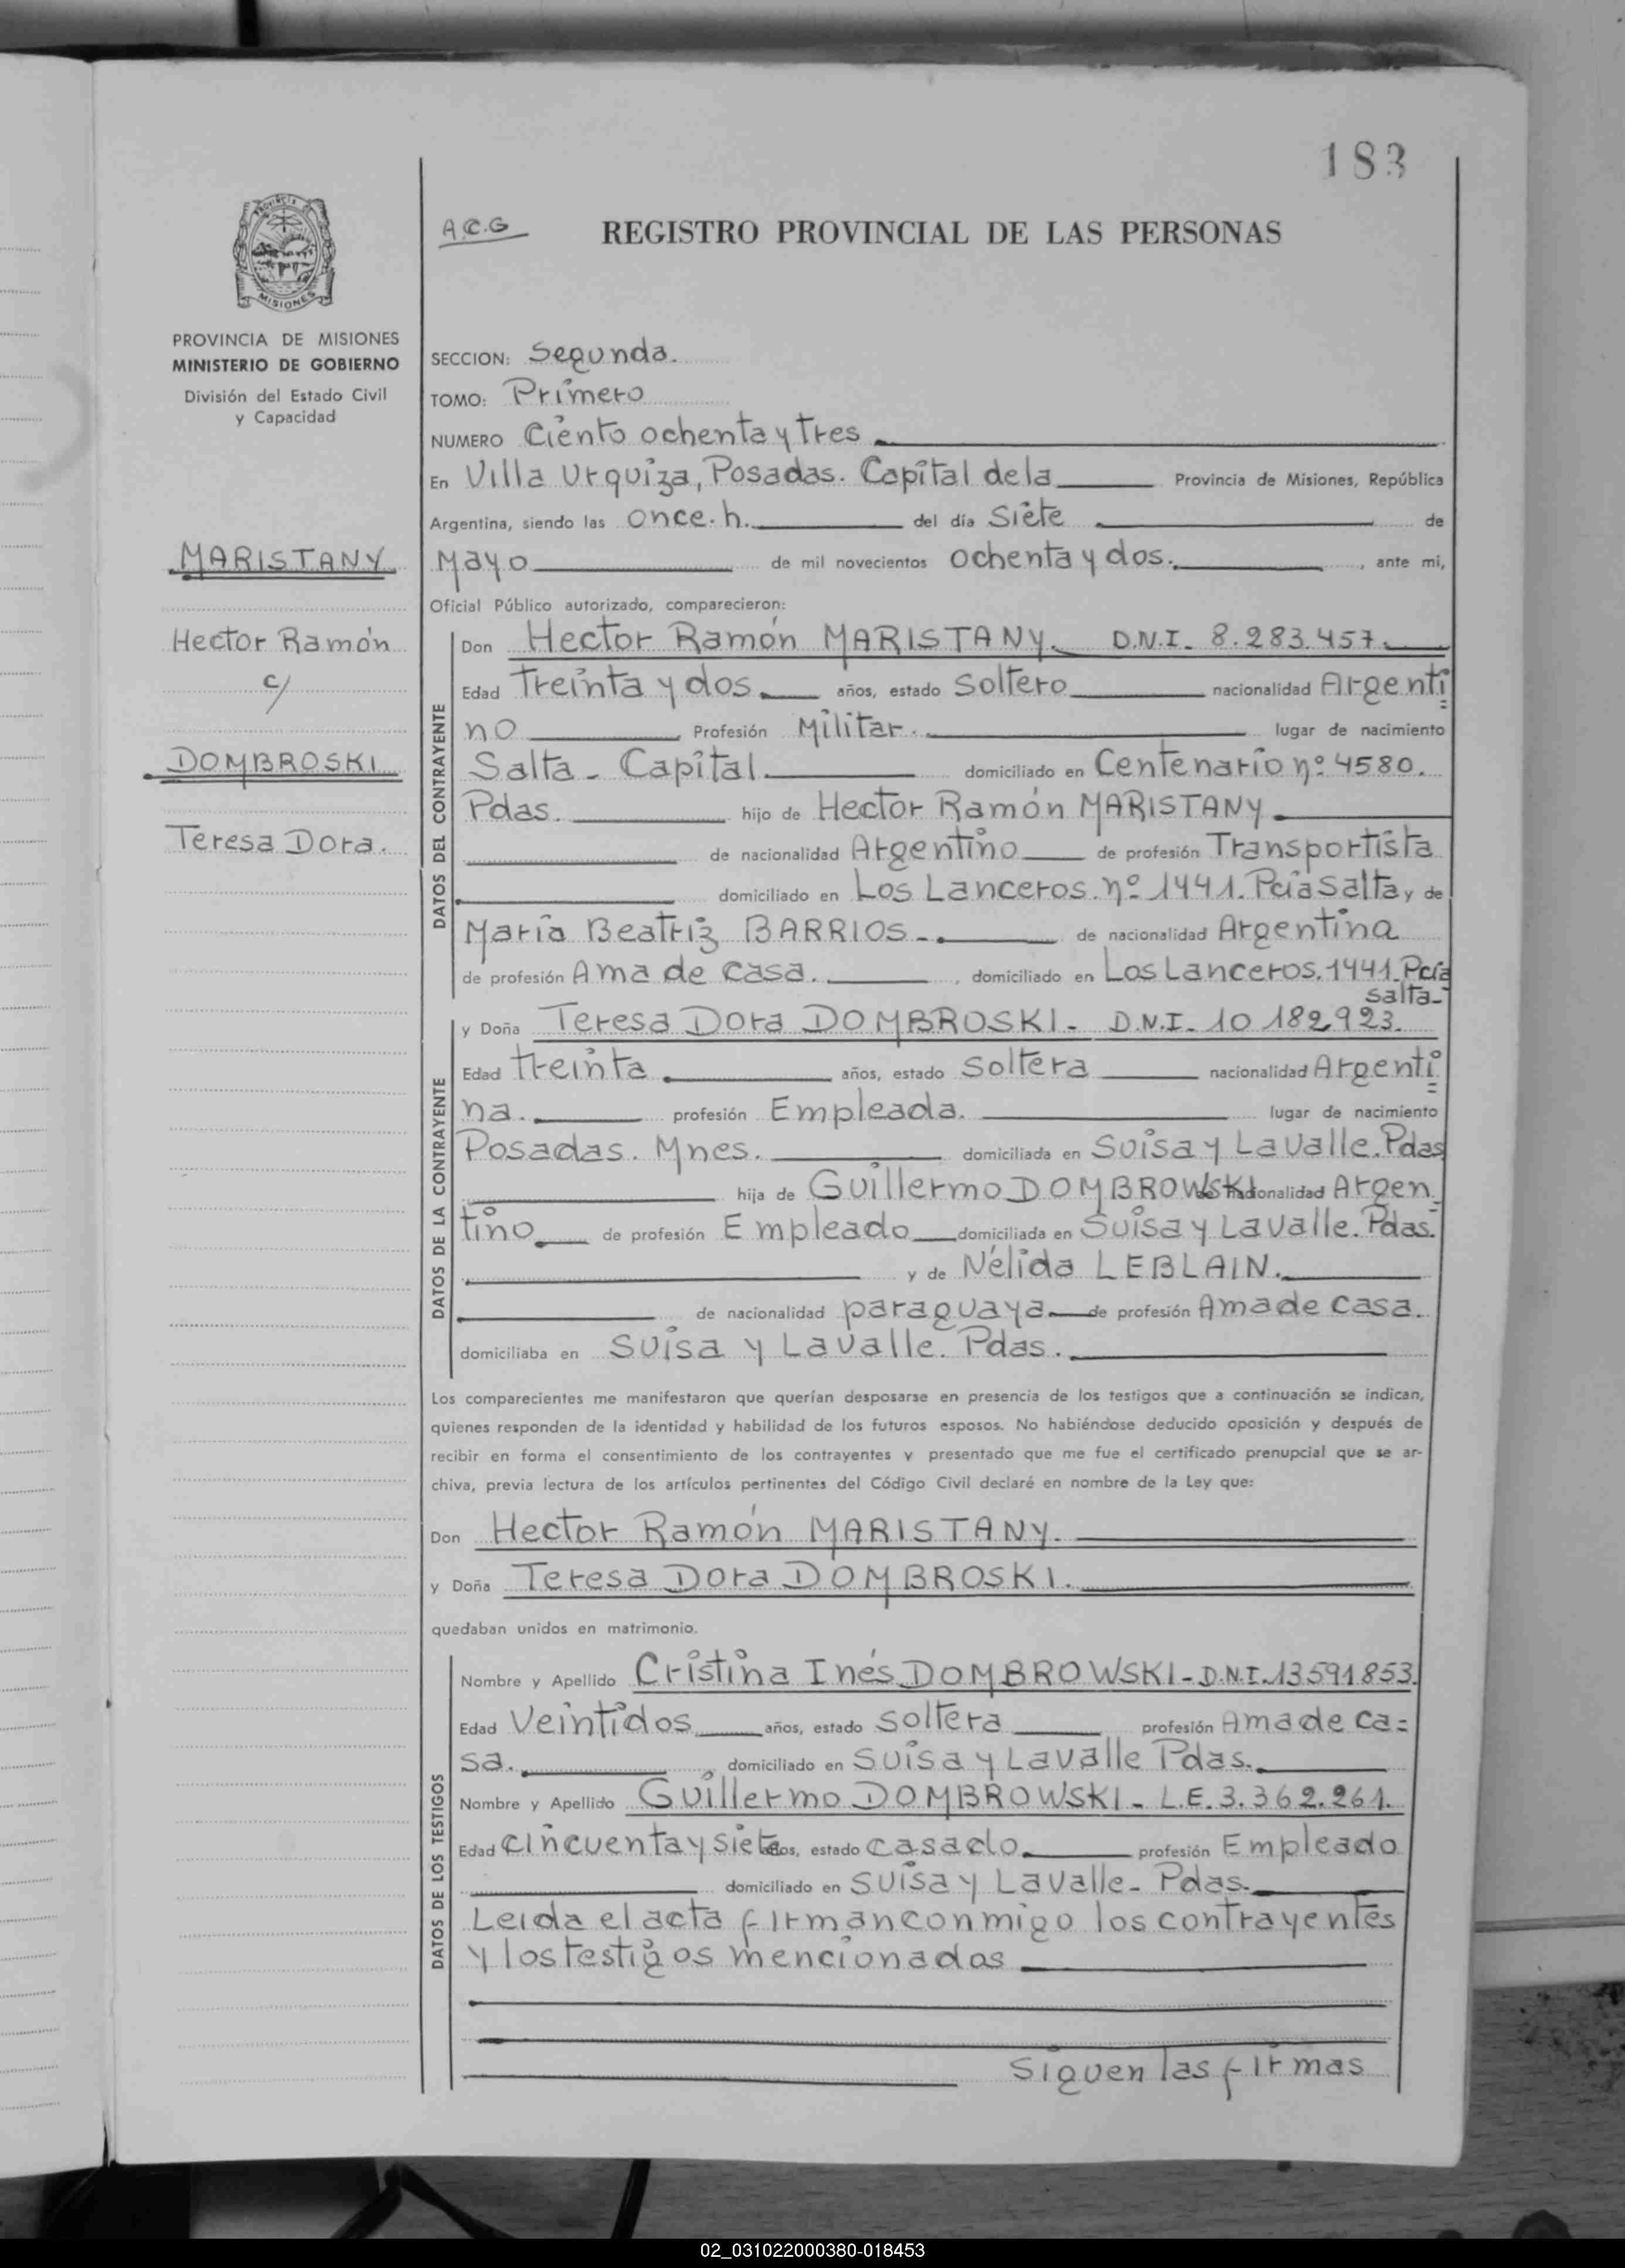 183
A.C.G
REGISTRO PROVINCIAL DE LAS PERSONAS
PROVINCIA
MISIONES
PROVINCIA DE MISIONES
MINISTERIO DE GOBIERNO
División del Estado Civil
y Capacidad
MARISTANY
Hector Ramón
c/
DOMBROSKI
Teresa Dora.
SECCION: Segunda.
TOMO: Primero
NUMERO Ciento ochenta y tres
En Villa Urquiza, Posadas. Capital de la Provincia de Misiones, República
Argentina, siendo las once. h. del día Siete de
Mayo de mil novecientos ochenta y dos. , ante mi,
Oficial Público autorizado, comparecieron:
DATOS DEL CONTRAYENTE
Don Hector Ramón MARISTANY. D.N.I. 8.283.457.
Edad Treinta y dos. años, estado Soltero nacionalidad Argenti
no Profesión Militar. lugar de nacimiento
Salta - Capital. domiciliado en Centenario nº 4580.
Pdas. hijo de Hector Ramón MARISTANY
de nacionalidad Argentino de profesión Transportista
domiciliado en Los Lanceros. nº 1441. Pcia Salta y de
Maria Beatriz BARRIOS. de nacionalidad Argentina
de profesión Ama de casa. , domiciliado en Los Lanceros. 1441. Pcia
Salta-
DATOS DE LA CONTRAYENTE
y Doña Teresa Dora DOMBROSKI - D.N.I. 10 182,923.
Edad treinta años, estado Soltera nacionalidad Argenti
na. profesión Empleada. lugar de nacimiento
Posadas. Mnes. domiciliada en Suisa y Lavalle. Pdas
hija de Guillermo DOMBROWSKI de nacionalidad Argen
tino de profesión Empleado domiciliada en Suisa y Lavalle. Pdas.
y de Nélida LEBLAIN.
de nacionalidad paraguaya de profesión Ama de casa.
domiciliaba en Suisa y Lavalle. Pdas.
Los comparecientes me manifestaron que querían desposarse en presencia de los testigos que a continuación se indican,
quienes responden de la identidad y habilidad de los futuros esposos. No habiéndose deducido oposición y después de
recibir en forma el consentimiento de los contrayentes y presentado que me fue el certificado prenupcial que se ar-
chiva, previa lectura de los artículos pertinentes del Código Civil declaré en nombre de la Ley que:
Don Hector Ramón MARISTANY.
y Doña Teresa Dora DOMBROSKI.
quedaban unidos en matrimonio.
DATOS DE LOS TESTIGOS
Nombre y Apellido Cristina Inés DOMBROWSKI - D.N.I. 13591.853.
Edad Veintidos años, estado soltera profesión Ama de ca=
sa. , domiciliado en Suisa y Lavalle Pdas.
Nombre y Apellido Guillermo DOMBROWSKI - L.E. 3.362.261.
Edad cincuenta y siete años, estado casado profesión Empleado
domiciliado en Suisa y Lavalle - Pdas.
Leida el acta firman conmigo los contrayentes
y los testigos mencionados
Siguen las firmas
02_031022000380-018453